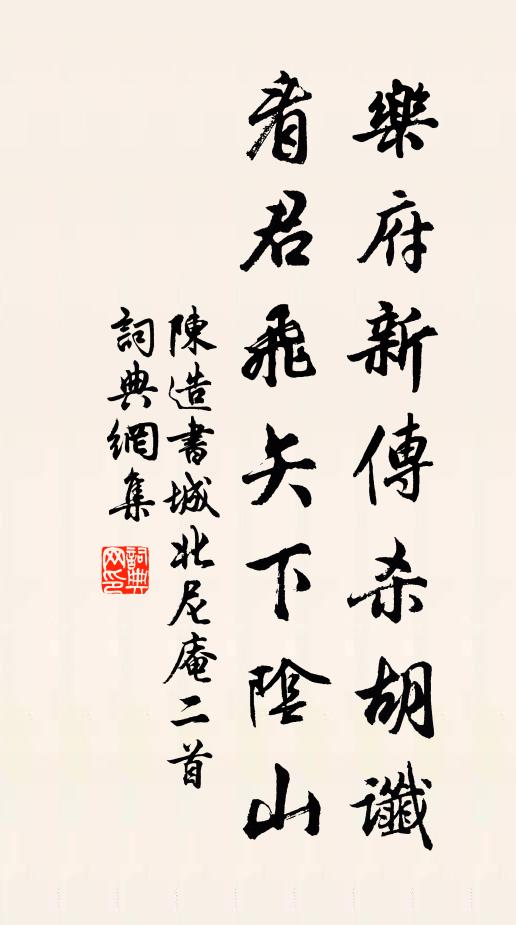 樂府新傳杀胡讖
看君飛矢下陰山
陳造書城北尼庵二首
詞典網集
詞典網印